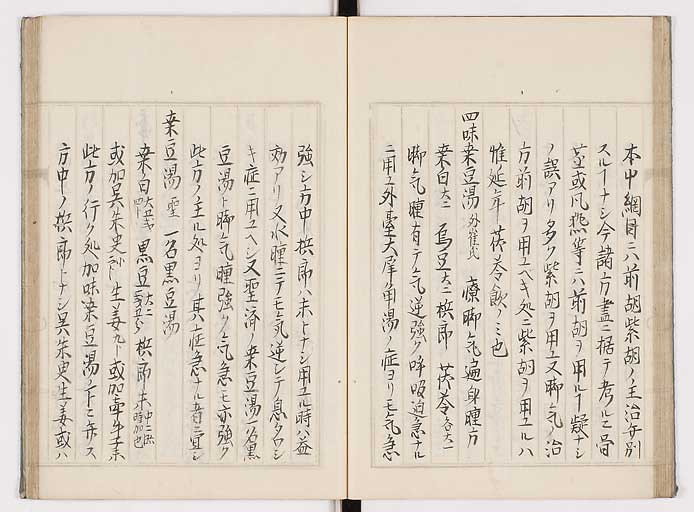 本中綱目ニハ前胡紫胡ノ主治分別
スルヿナシ今諸方書ニ據テ考ルニ骨
蒸或風熱等ニハ前胡ヲ用ルヿ疑ナシ
ノ誤アリ多ク紫胡ヲ用又脚気ノ治
方前胡ヲ用ユベキ処ニ紫胡ヲ用ユルハ
惟延年茯苓飲ノミ也
四味桒豆湯 外崔氏 療脚気遍身腫方
桒白大二 烏豆大二 梹郎 茯苓各大一
脚気腫有テ気逆強ク呼吸迫急ナル
ニ用ユ外臺大犀角湯ノ症ヨリモ気急
強シ方中梹郎ハ末トナシ用ユル時ハ益
効アリ又水腫ニテモ気逆シテ息タヘシ
キ症ニ用ユヘシ又聖済ノ桒豆湯一名黒
豆湯ト脚気腫強ク気急モ亦強ク
此方ノ主ル処ヨリ其症急ナル者ニ宜シ
桒豆湯 聖 一名黒豆湯
桒白 黒豆 梹郎末
或加呉朱史 生姜 或加牽牛子末
此方ノ行ク処加味桒豆湯ノ下ニ弁ス
方中ノ梹郎トナシ呉朱史生姜或ハ